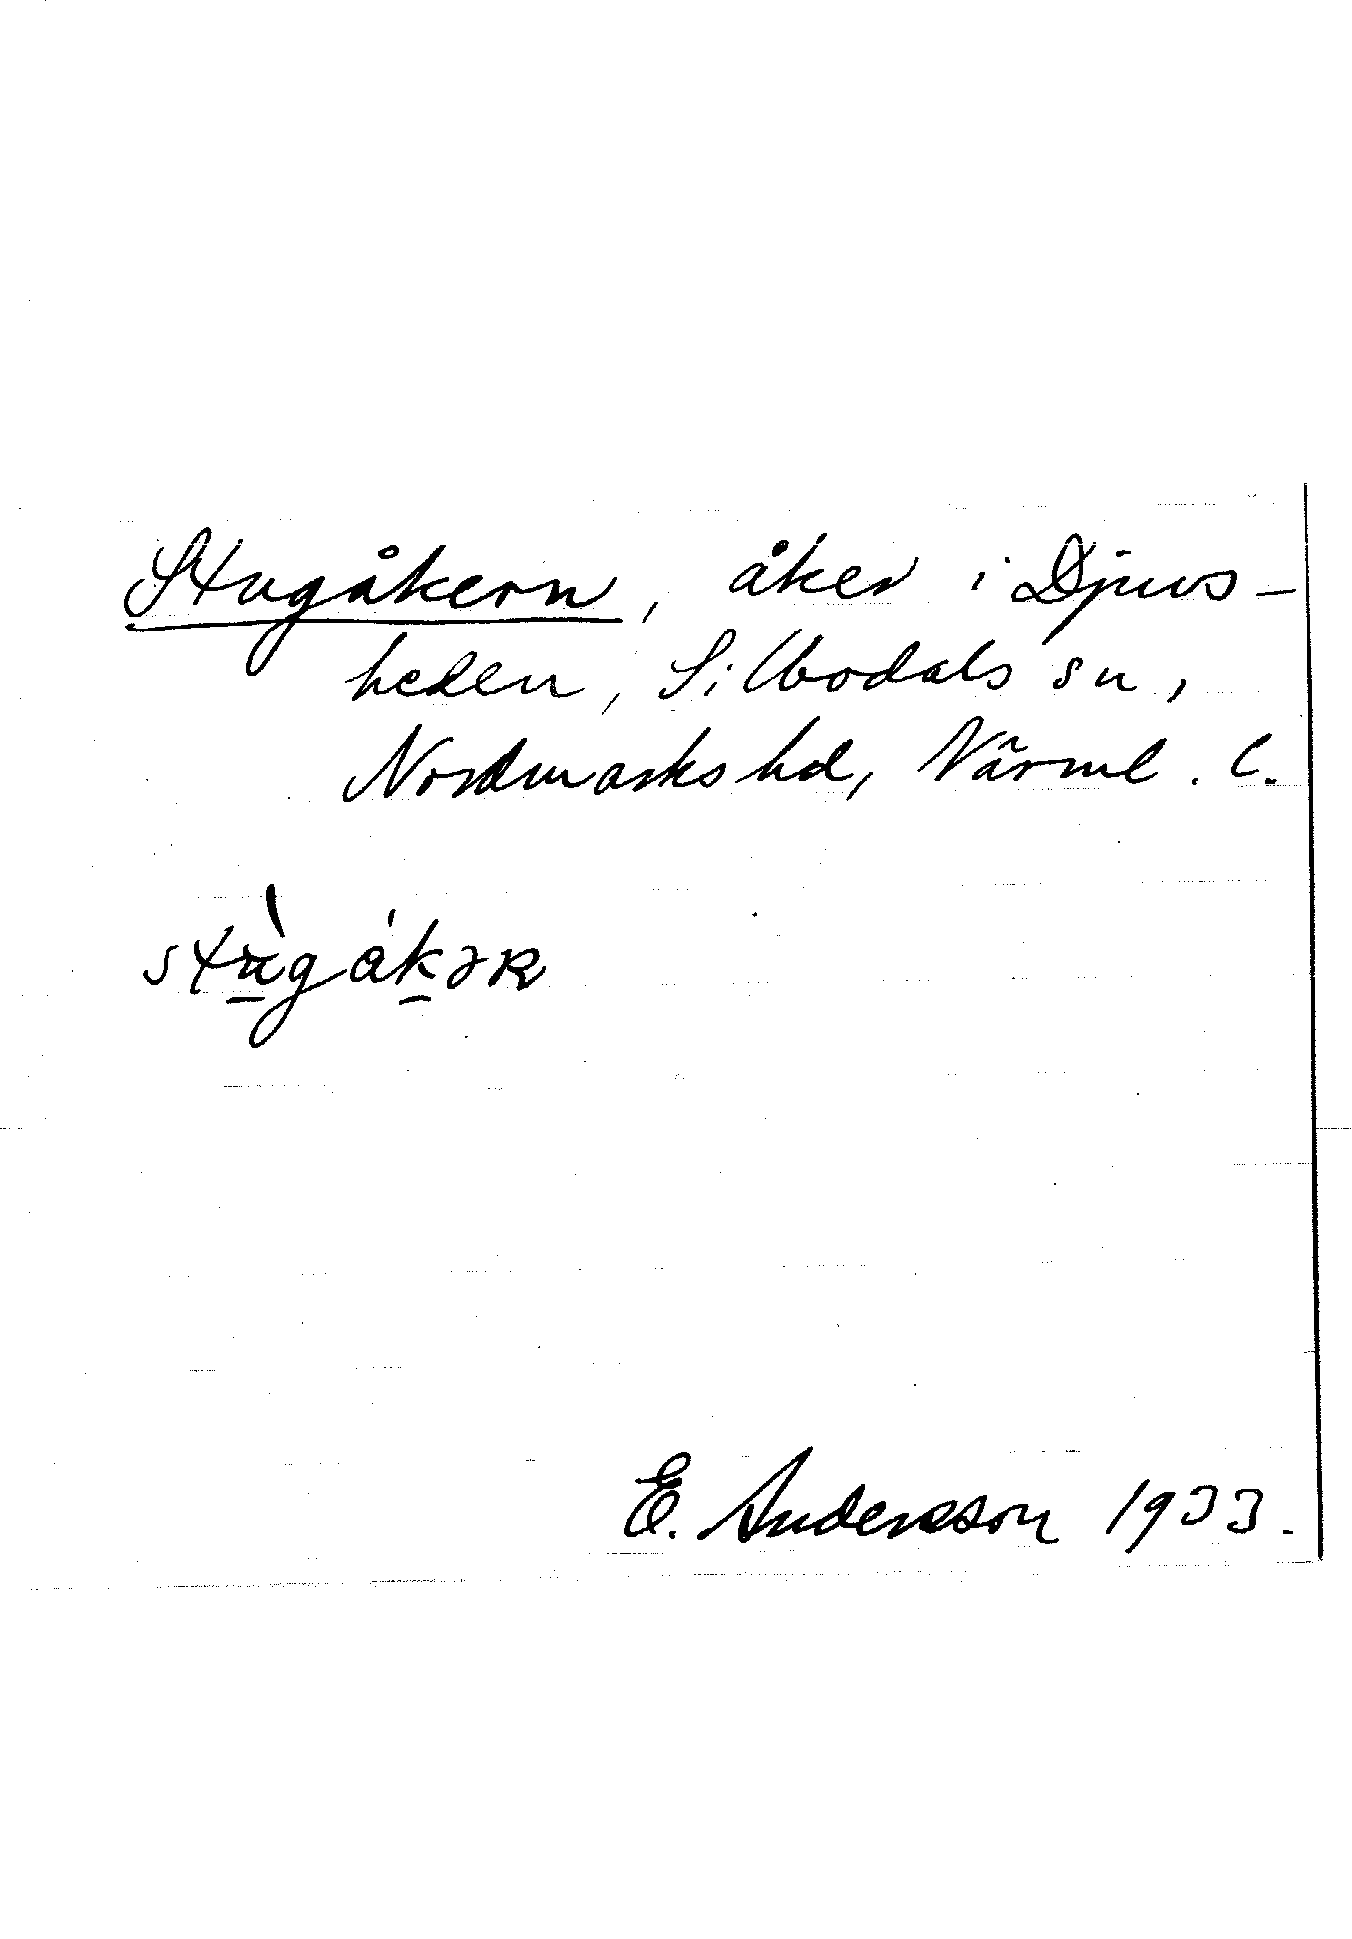 Stugåkern, åker i Djurs-
heden, Silbodals sn,
Nordmarks hd, Värml. l.
stùgåkəʀ
E. Andersson 1933.